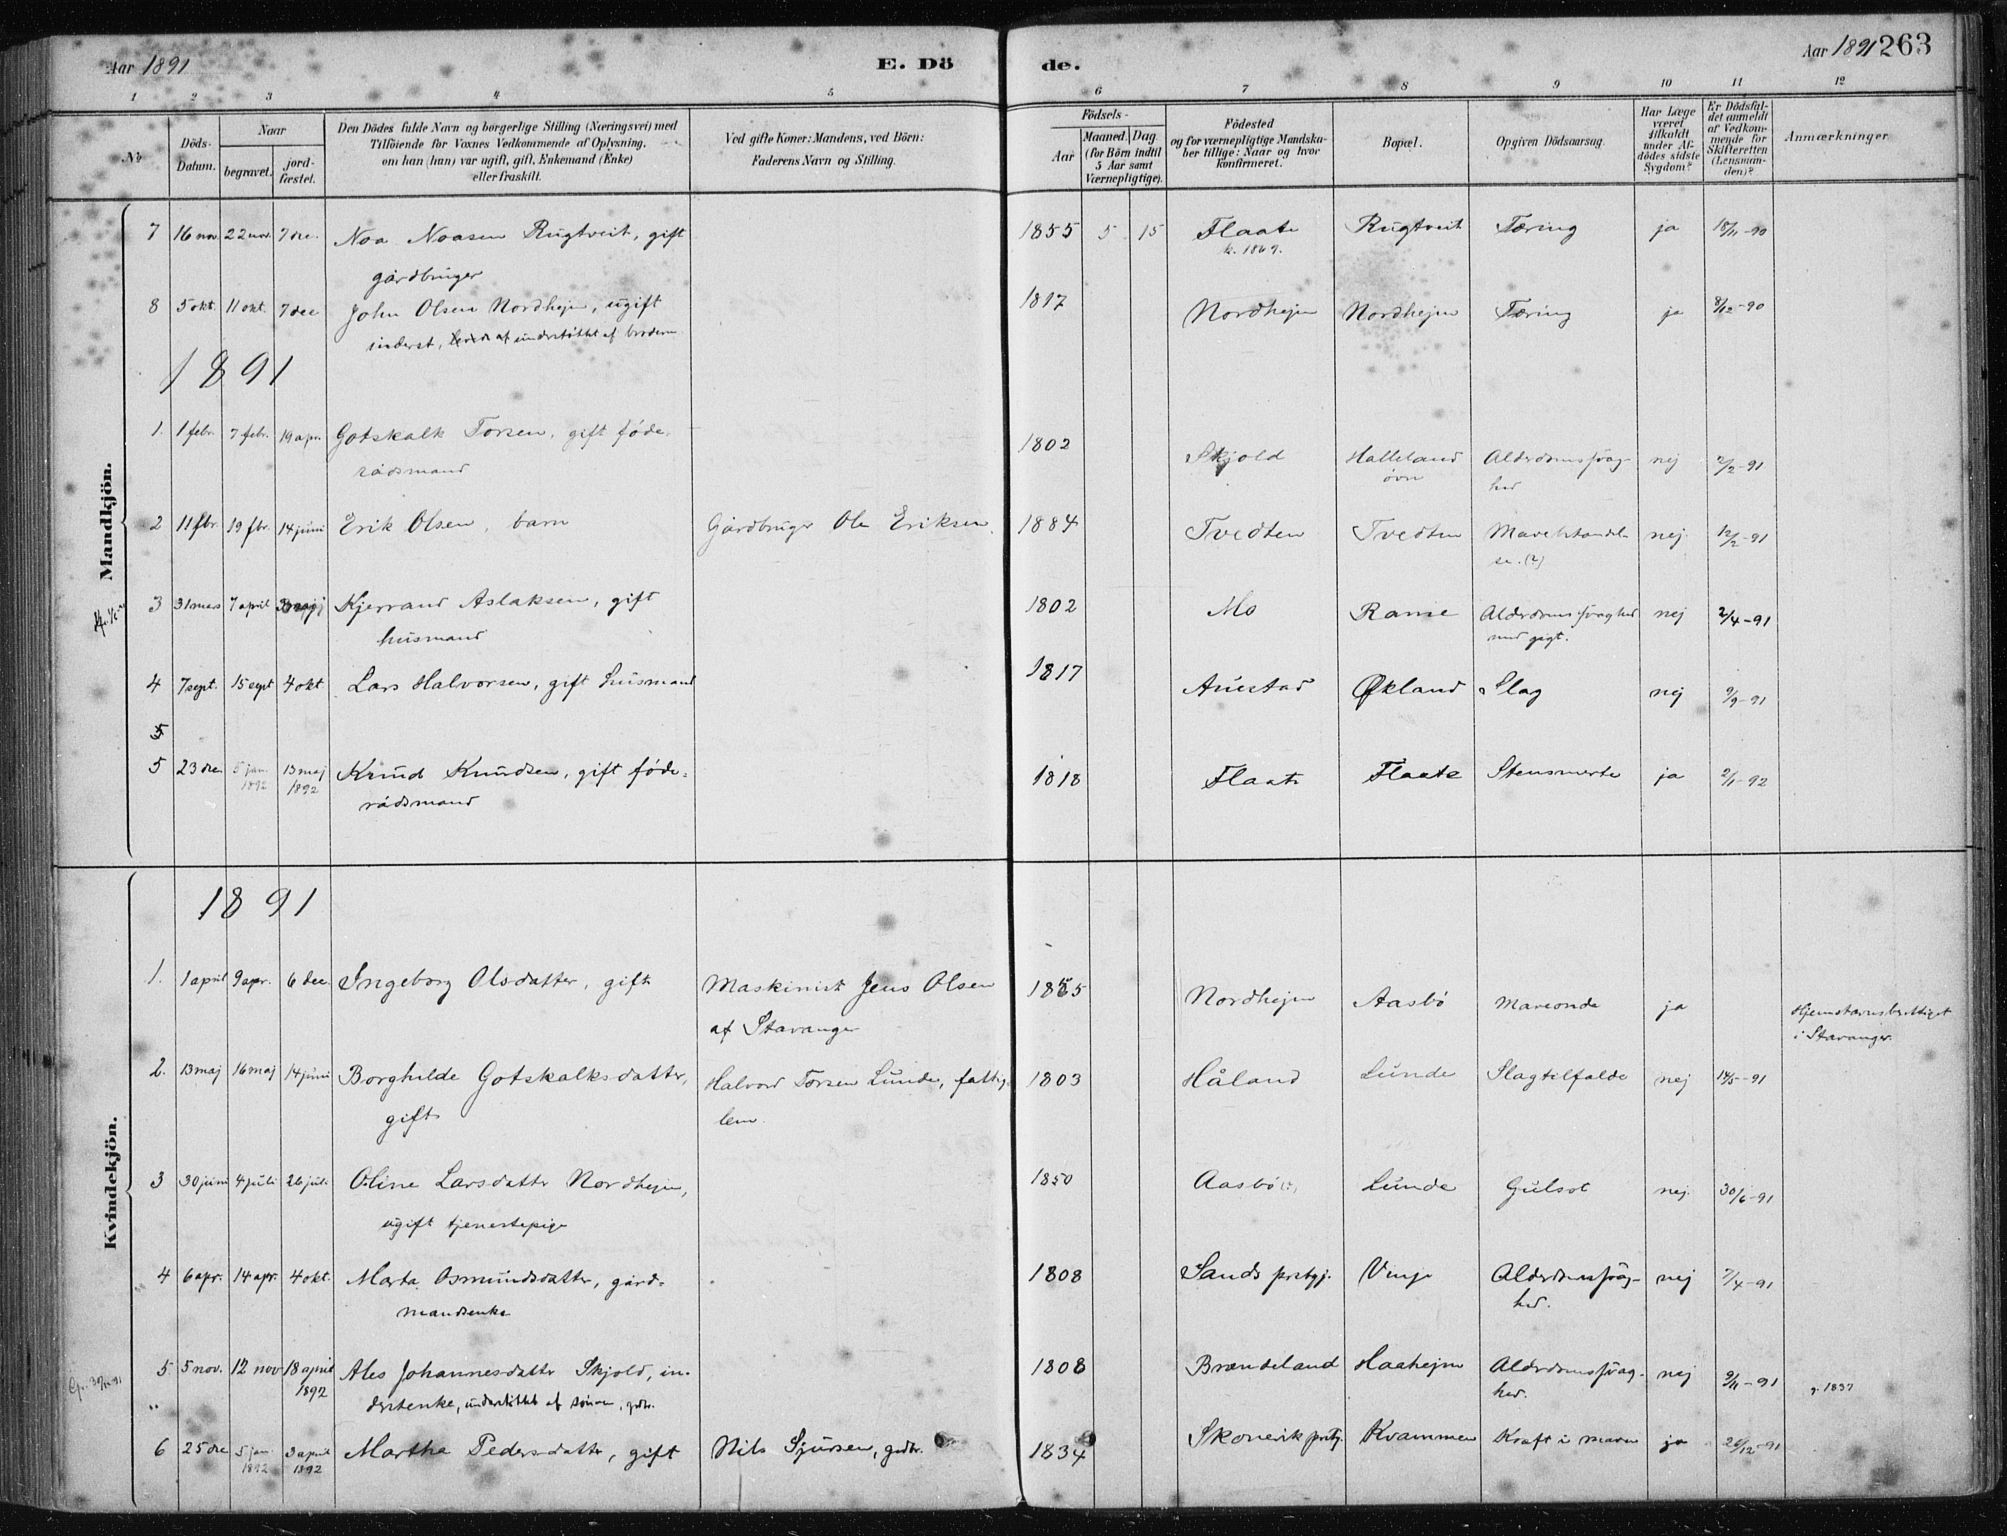 Aar 1891
E. Dö
de.
Aar 1891 263
1 2 3 4 5 6 7 8 9 10 11 12
No
Döds-Datum.
Naar
begravet.
jord-fæstet.
Den Dödes fulde Navn og borgerlige Stilling (Næringsvei) med
Tilföiende for Voxnes Vedkommende af Oplysning,
om han (hun) var ugift, gift, Enkemand (Enke)
eller fraskilt.
Ved gifte Koner: Mandens, ved Börn:
Faderens Navn og Stilling.
Födsels-
Aar
Maaned. Dag.
(for Börn indtil
5 Aar samt
Værnepligtige).
Födested
og for værnepligtige Mandska-
ber tillige: Naar og hvor
konfirmeret.
Bopæl.
Opgiven Dödsaarsag.
Har Læge
været
tilkaldt
under Af-
dödes sidste
Sygdom?
Er Dödsfal-
det anmeldt
af Vedkom-
mende for
Skifteretten
(Lensman-
den)?
Anmærkninger.
Mandkjön.
7 16 nov 22 nov. 7 dec. Noa Noasen Rugtveit, gift 1855 5 15 Flaate Rugtveit Tæring ja 18/11-90
gårdbruger k. 1869.
8 5 okt. 11 okt. 7 dec John Olsen Nordhejm, ugift 1817 Nordhejm Nordhejm Tæring ja 8/12-90
inderst, understøttet af broderen
1891
1. 1 febr. 7 febr. 19 apr. Gotskalk Torsen, gift føde- 1802 Skjold Halleland Alderdomssvag- nej 2/2-91
rådsmand øvre hed
2 11 fbr. 19 fbr. 14 juni Erik Olsen, barn Gårdbruger Ole Eriksen 1884 Tvedten Tvedten nej 12/2-91
se. (?)
3 31 mars 7 april Kjerrand Aslaksen, gift 1802 Mo Rame Alderdomssvaghed nej 2/4-91
husmand med gigt.
4 7 sept. 15 sept 4 okt. Lars Halvorsen, gift husmand 1817 Auestad Økland Slag nej 9/9-91
5
5 23 dec 5 jan. 1892 13 maj 1892 Knud Knudsen, gift føde- 1818 Flaate Flaate Stensmerte ja 2/1-92
rådsmand
Kvindekjön.
1891
1. 1 april 9 apr. 6 dec. Ingeborg Olsdatter, gift Maskinist Jens Olsen Nordhejm Aasbö Maveonde ja Hjemstavnsberettiget
af Stavanger i Stavanger.
2. 13 maj 16 maj 14 juni Borghilde Gotskalksdatter, Halvord Torsen Lunde, fattig- 1803 Håland Lunde Slagtilfælde nej 14/5-91
gift lem.
3 30 juni 4 juli 26 juli Oline Larsdatter Nordhejm, 1850 Aasbö (?) Lunde Gulsot nej. 30/6-91
ugift tjenestepige
4 6 apr. 14 apr. 4 okt. Marta Osmundsdatter, gård- 1808 Sands prstgj. Vinje Alderdomssvag- nej 7/4-91
mandsenke hed.
5 5 nov. 12 nov 18 april 1892 Ales Johannesdatter Skjold, in- 1808 Brændeland Haahejm Alderdomssvag- nej 9/11-91 g. 1837
derstenke, understöttet af sönnen, grdbr. hed.
6 25 dec 5 jan 1892 3 april 1892 Martha Pedersdatter, gift Nils Sjursen, grdbr. 1834 Skonevik prstgj. Kvammen Kræft i maven ja 26/12-91